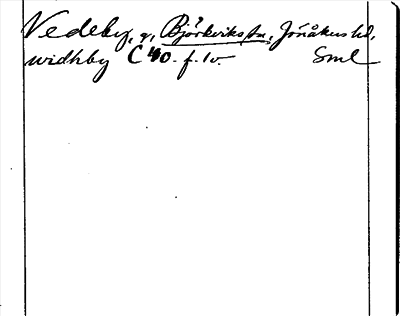 Vedeby, g, Björkviks sn, Jönåkers hd,
widhby C 40. f. 1v. Sml